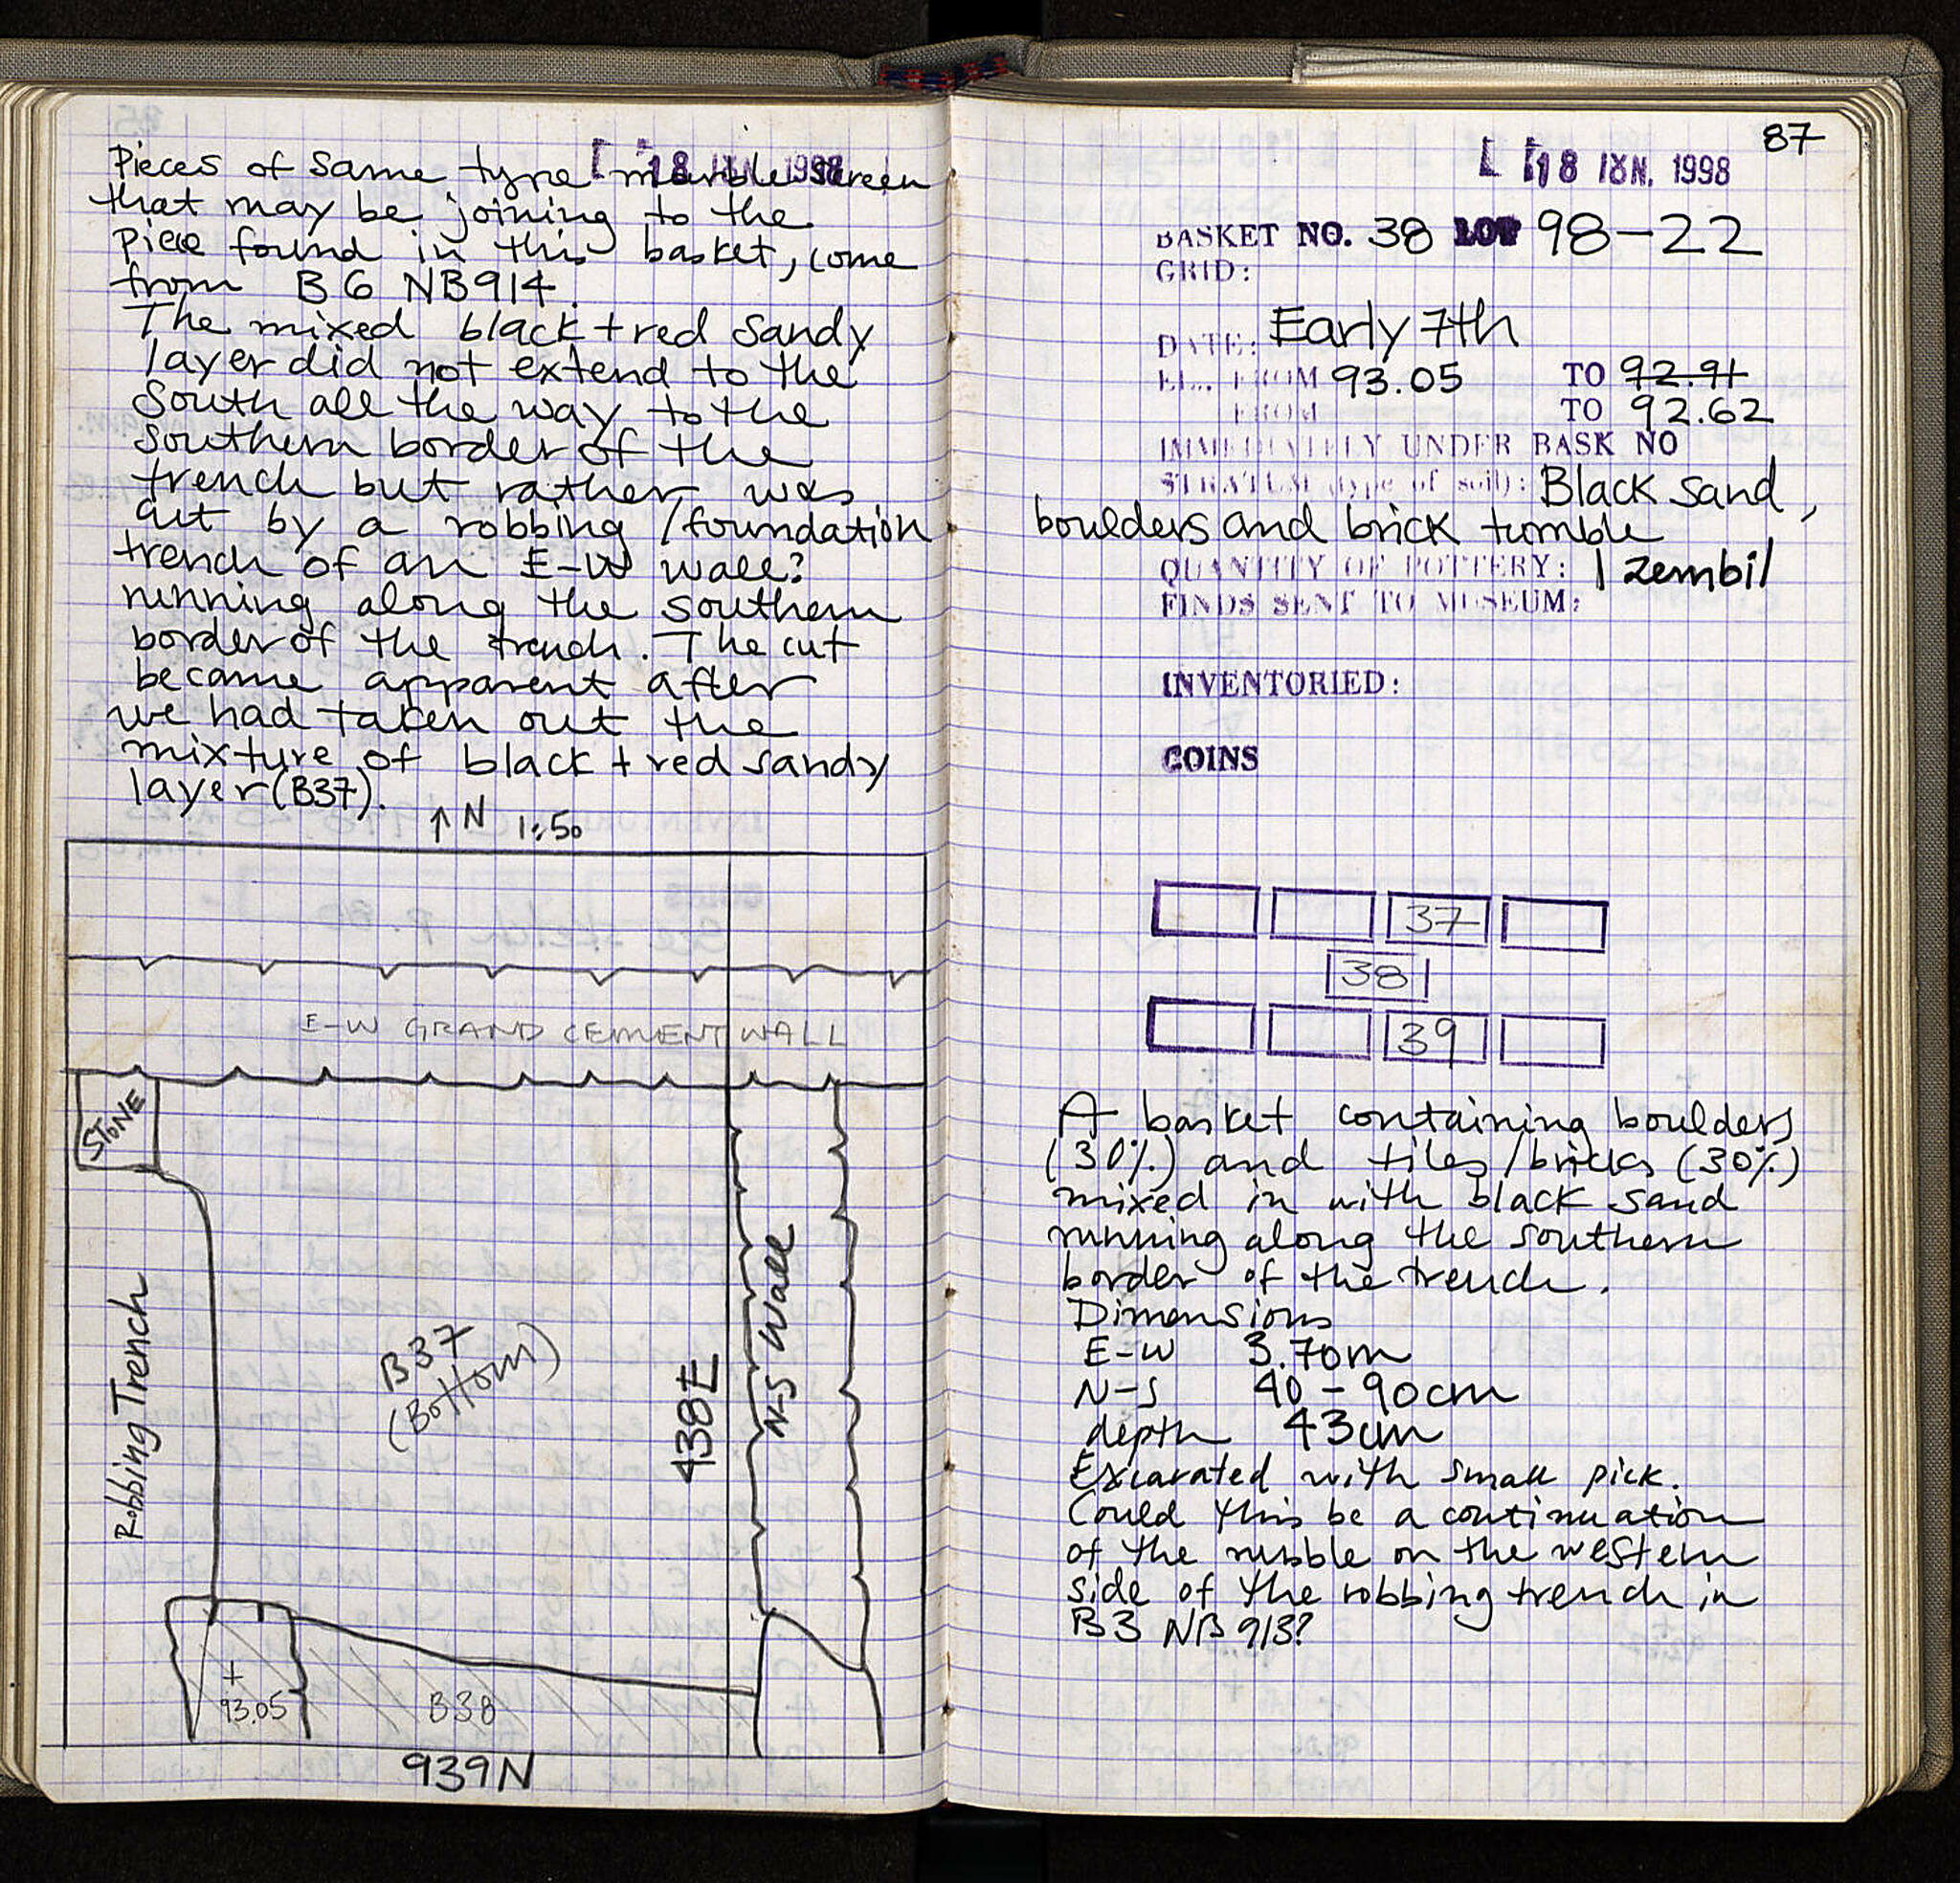 18 ΙΟΥΝ. 1998
Pieces of same type marble screen
that may be joining to the
piece found in this basket, come
from B6 NB914.
The mixed black + red sandy
layer did not extend to the
South all the way to the
Southern border of the
trench but rather was
cut by a robbing /foundation
trench of an E-W wall?
running along the southern
border of the trench. The cut
became apparent after
we had taken out the
mixture of black + red sandy
layer (B37).
↑ N 1:50
E-W GRAND CEMENT WALL
STONE
Robbing Trench
B37
(Bottom)
438E
N-S Wall
+
93.05
B38
939N
87
18 ΙΟΥΝ. 1998
BASKET NO. 38 LOT 98-22
GRID:
DATE: Early 7th
EL. FROM 93.05 TO 92.91
FROM TO 92.62
IMMEDIATELY UNDER BASK NO
STRATUM (type of soil): Black sand,
boulders and brick tumble
QUANTITY OF POTTERY: 1 zembil
FINDS SENT TO MUSEUM:
INVENTORIED:
COINS
37
38
39
A basket containing boulders
(30%) and tiles/bricks (30%)
mixed in with black sand
running along the southern
border of the trench.
Dimensions
E-W 3.70m
N-S 40-90cm
depth 43cm
Excavated with small pick.
Could this be a continuation
of the rubble on the western
side of the robbing trench in
B3 NB 913?